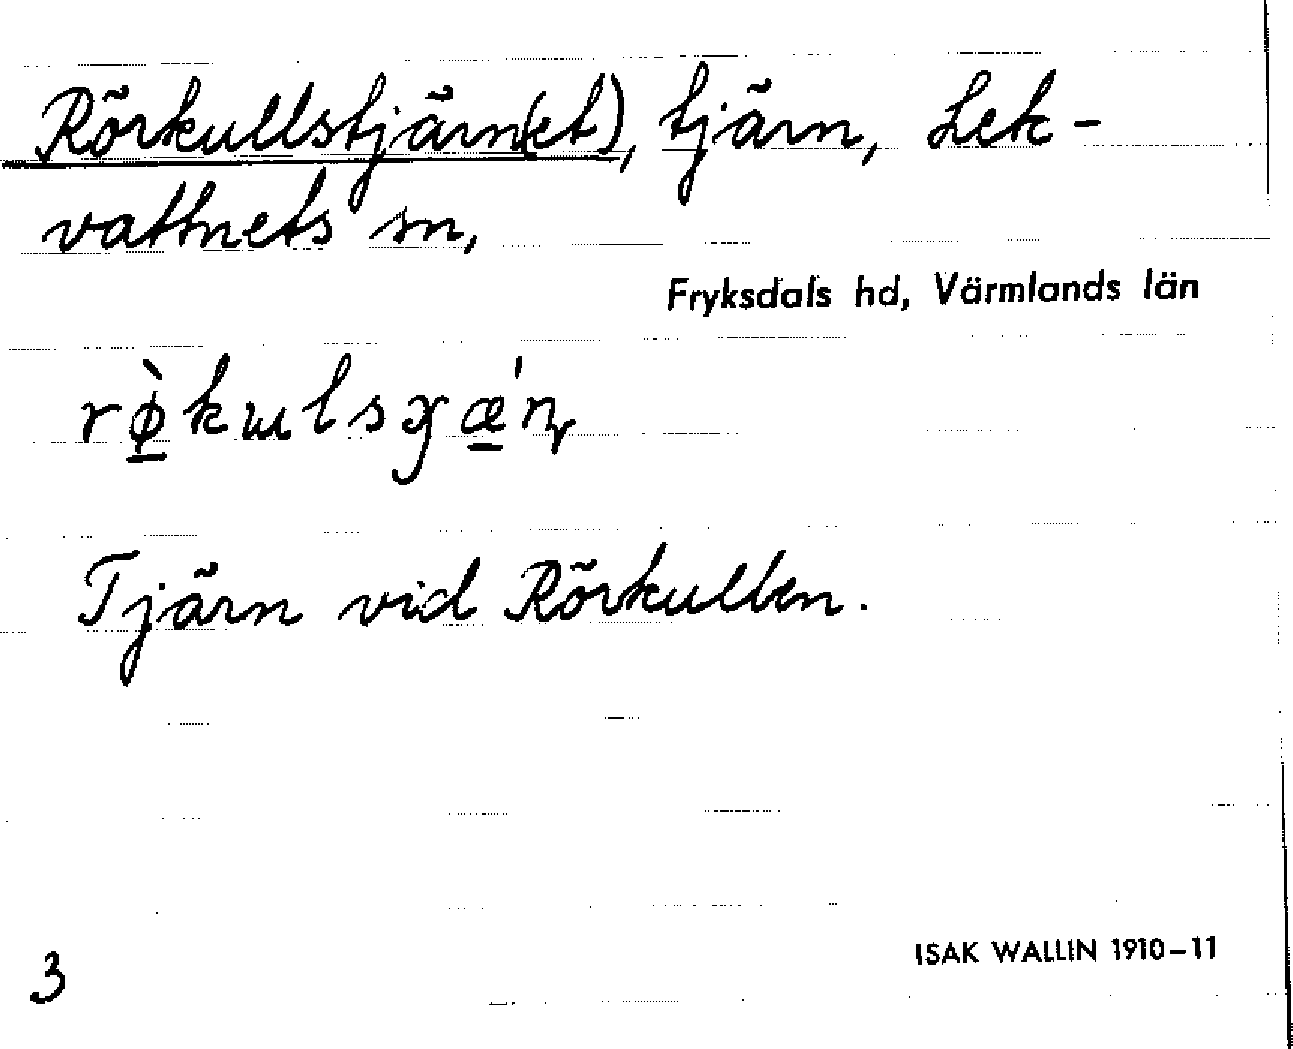 Rörkullstjärn(et), tjärn, Lek-
vattnets sn,
Fryksdals hd, Värmlands län
Tjärn vid Rörkullen.
3
ISAK WALLIN 1910-11